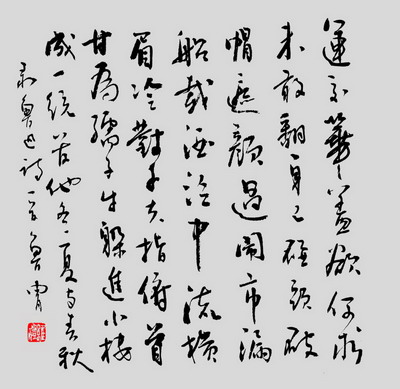 運交華蓋欲何求
未敢翻身已碰頭破
帽遮顏過鬧市漏
船載酒泛中流橫
眉冷對千夫指俯首
甘為孺子牛躲進小楼
成一統管他冬夏与春秋
录魯迅詩一首魯